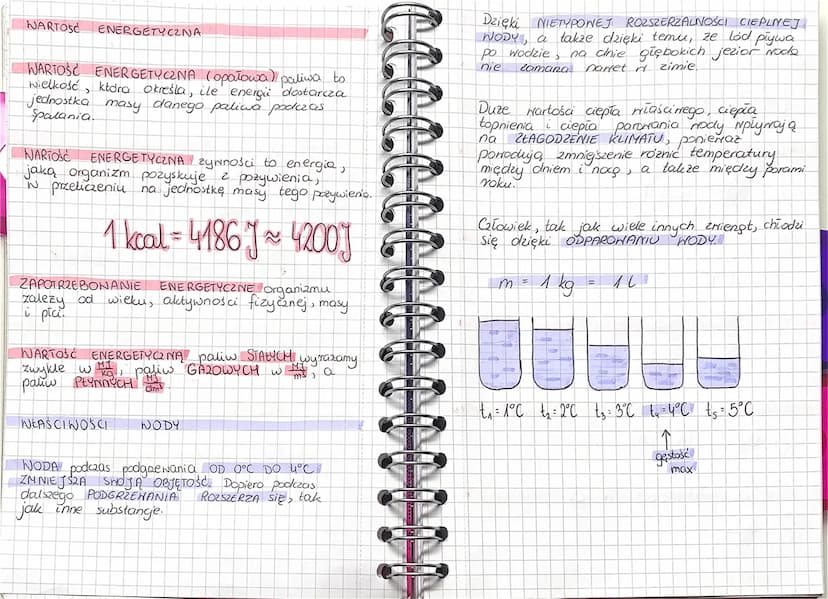 WARTOŚĆ ENERGETYCZNA
WARTOŚĆ ENERGETYCZNA (opałowa) paliwa to
wielkość, która określa, ile energii dostarcza
jednostka masy danego paliwa podczas
spalania.
WARTOŚĆ ENERGETYCZNA żywności to energia,
jaką organizm pozyskuje z pożywienia,
w przeliczeniu na jednostkę masy tego pożywienia.
1 kcal = 4186 J ≈ 4200 J
ZAPOTRZEBOWANIE ENERGETYCZNE organizmu
zależy od wieku, aktywności fizycznej, masy
i płci.
WARTOŚĆ ENERGETYCZNĄ paliw STAŁYCH wyrażamy
zwykle w MJ/kg, paliw GAZOWYCH w MJ/m³, a
paliw PŁYNNYCH MJ/dm³.
WŁAŚCIWOŚCI WODY
WODA podczas podgrzewania OD 0°C DO 4°C
ZMNIEJSZA SWOJĄ OBJĘTOŚĆ. Dopiero podczas
dalszego PODGRZEWANIA ROZSZERZA SIĘ, tak
jak inne substancje.
Dzięki NIETYPOWEJ ROZSZERZALNOŚCI CIEPLNEJ
WODY, a także dzięki temu, że lód pływa
po wodzie, na dnie głębokich jezior woda
nie zamarza nawet w zimie.
Duże wartości ciepła właściwego, ciepła
topnienia i ciepła parowania wody wpływają
na ZŁAGODZENIE KLIMATU, ponieważ
powodują zmniejszenie różnic temperatury
między dniem i nocą, a także między porami
roku.
Człowiek, tak jak wiele innych zwierząt, chłodzi
się dzięki ODPAROWANIU WODY.
m = 1 kg = 1 L
t₁ = 1°C t₂ = 2°C t₃ = 3°C t₄ = 4°C t₅ = 5°C
gęstość
max